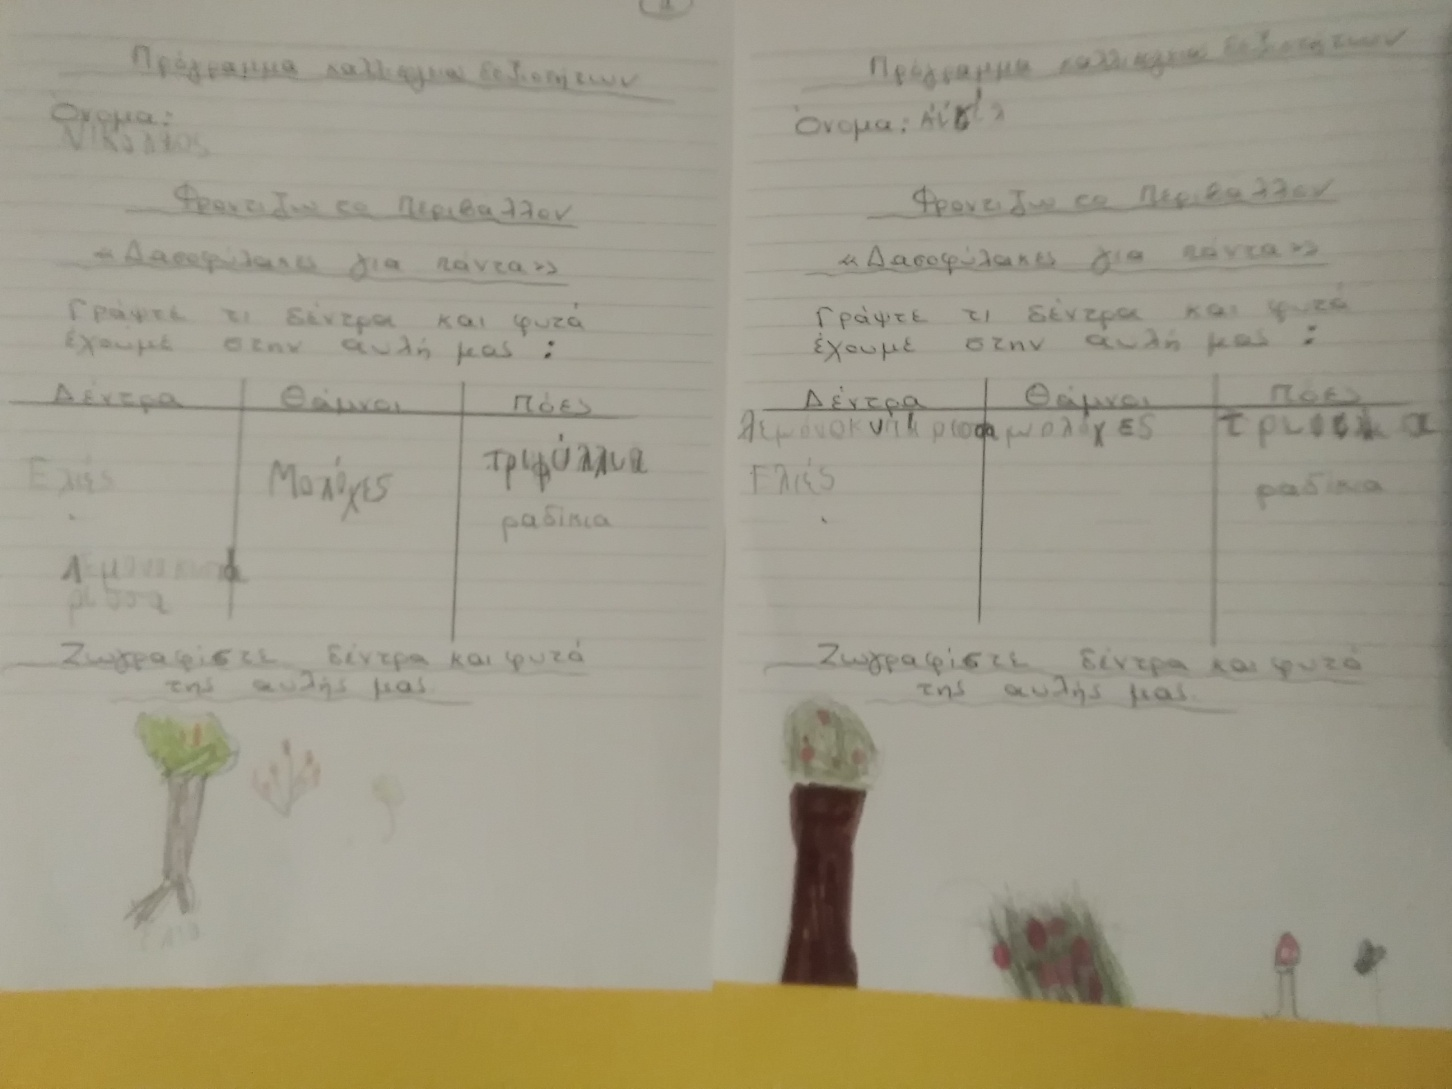 1
Πρόγραμμα καλλιέργεια δεξιοτήτων
Όνομα:
Νικόλαος
Φροντίζω το Περιβάλλον
«Δασοφύλακες για πάντα»
Γράψτε τι δέντρα και φυτά
έχουμε στην αυλή μας :
Δέντρα Θάμνοι Πόες
Ελιές Μολόχες τριφύλλια
ραδίκια
ρισσα
Ζωγραφίστε δέντρα και φυτά
της αυλής μας.
Πρόγραμμα καλλιέργεια δεξιοτήτων
Όνομα:
Φροντίζω το Περιβάλλον
«Δασοφύλακες για πάντα»
Γράψτε τι δέντρα και φυτά
έχουμε στην αυλή μας :
Δέντρα Θάμνοι Πόες
μολόχες
Ελιές ραδίκια
Ζωγραφίστε δέντρα και φυτά
της αυλής μας.